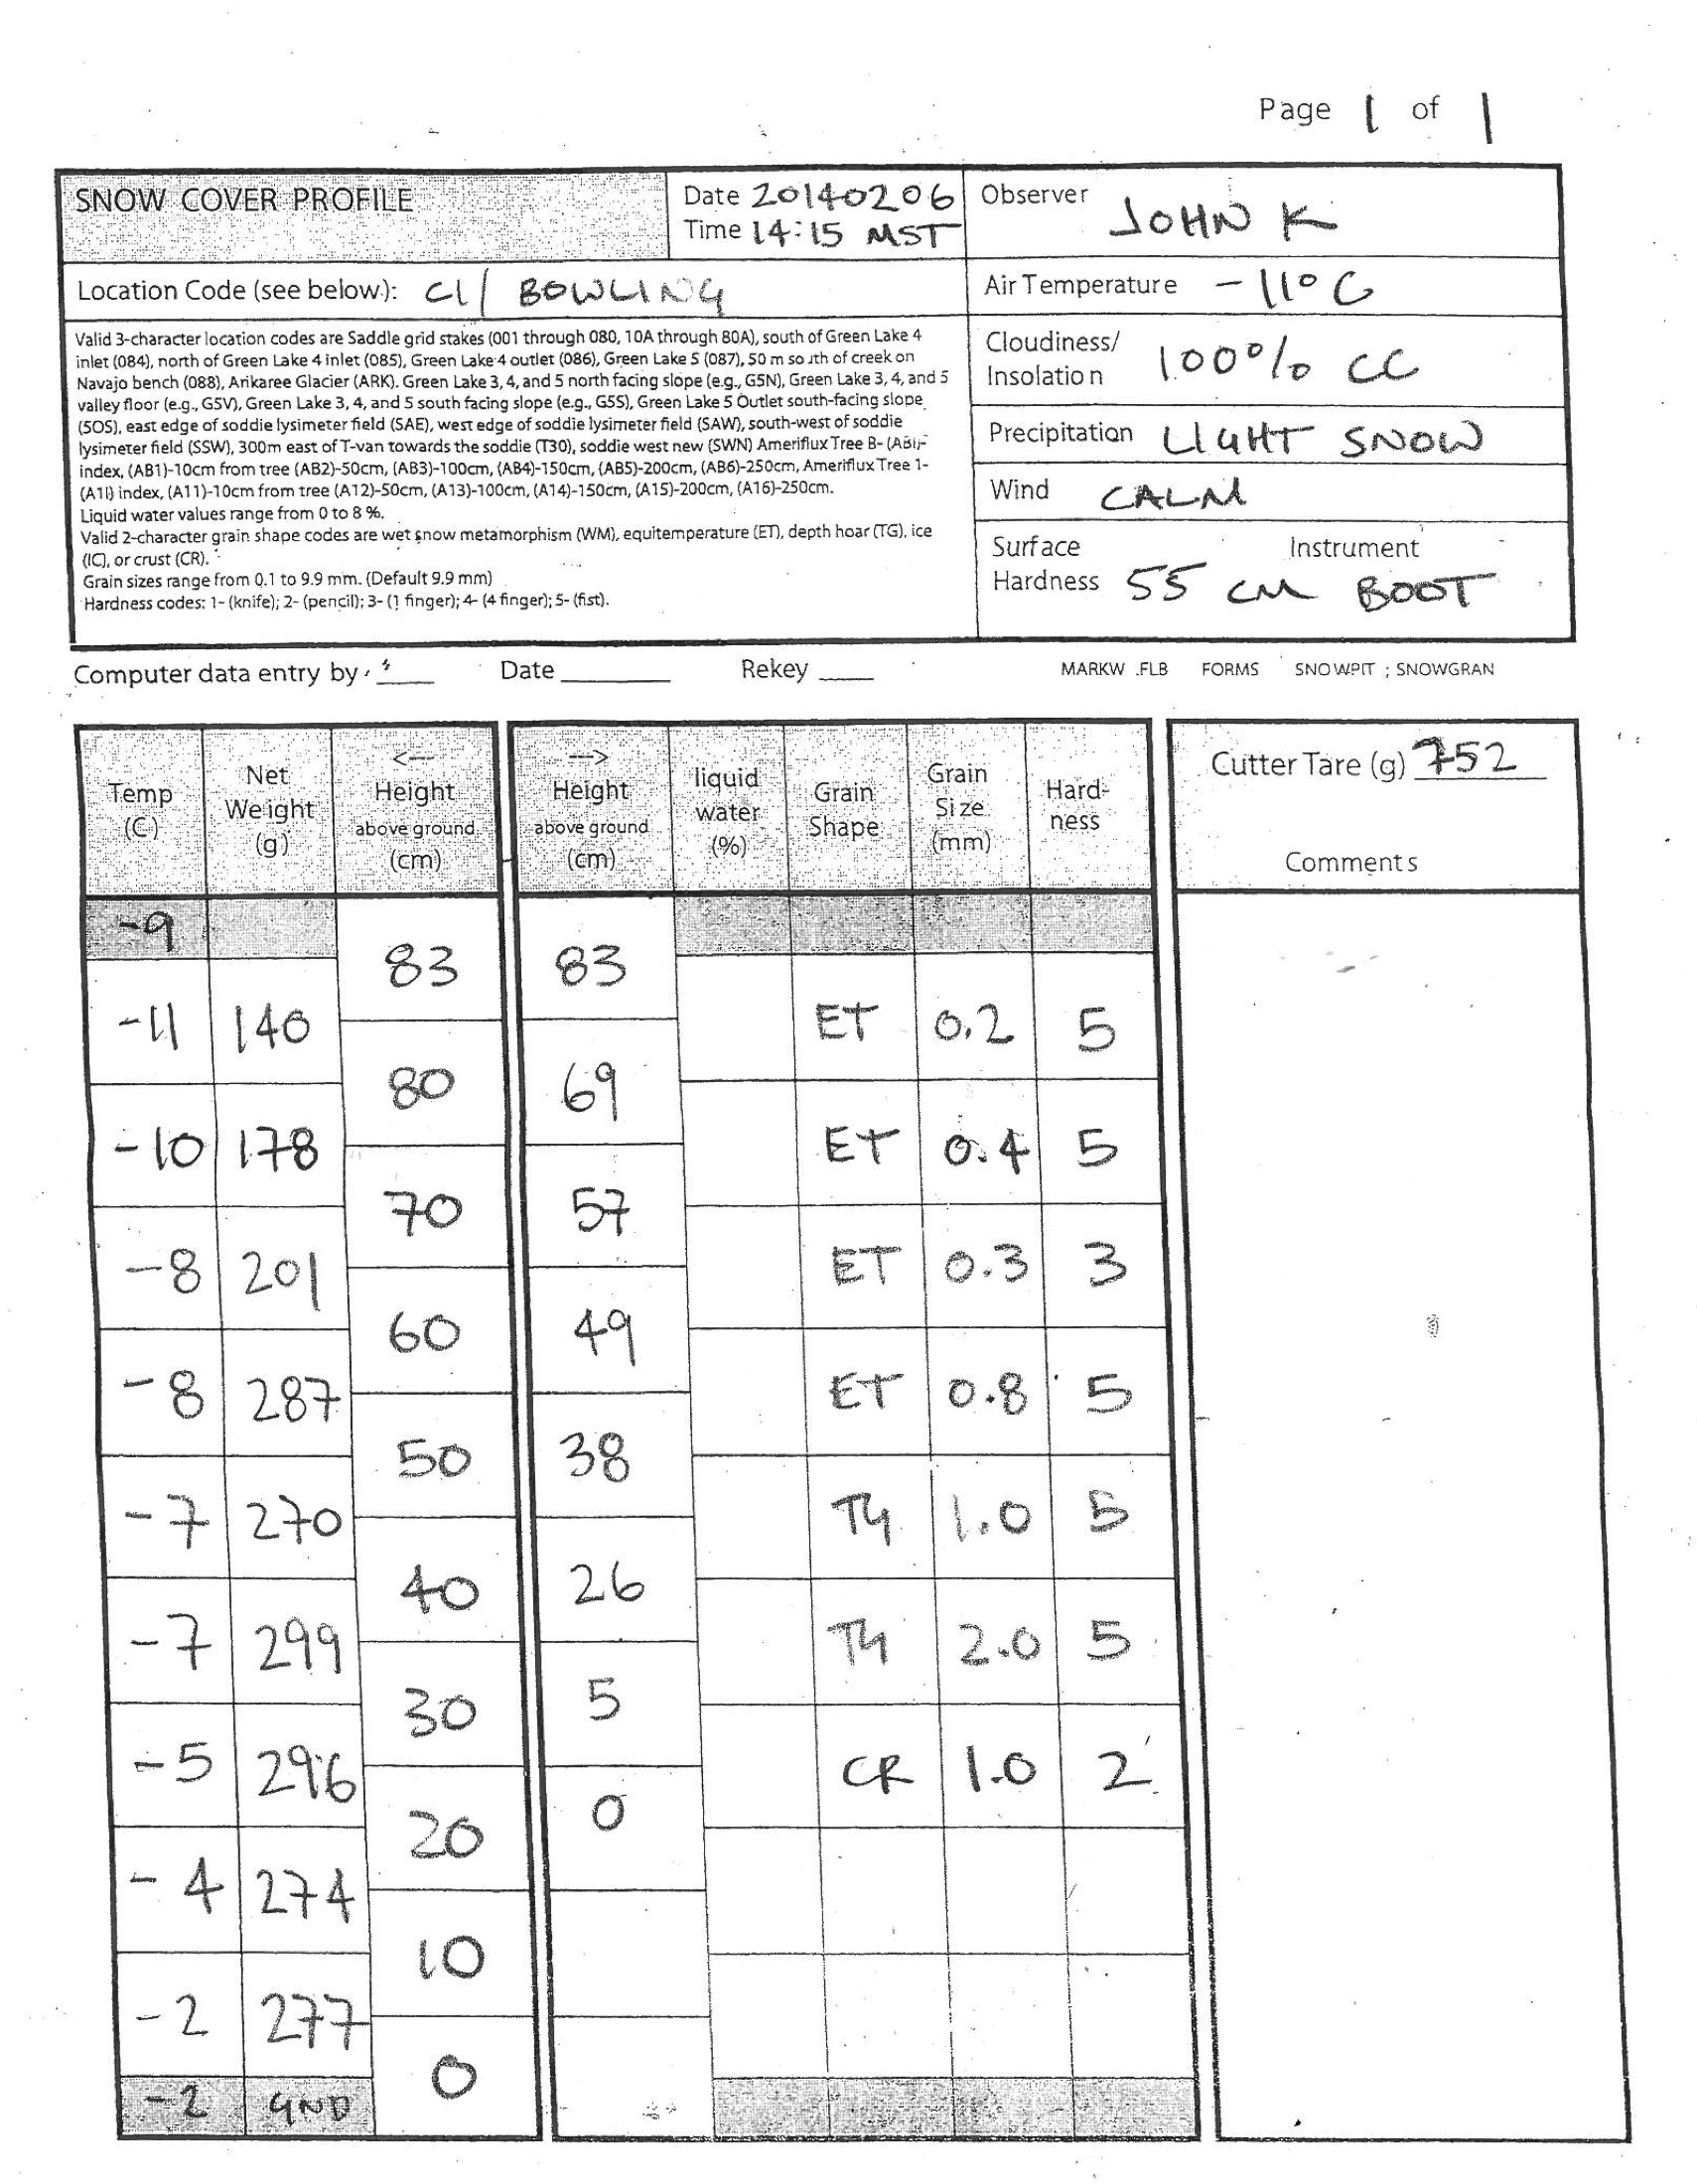 Page 1 of 1
SNOW COVER PROFILE
Date 20140206
Time 14:15 MST
Observer JOHN K
Location Code (see below): C1/ BOWLING
Air Temperature -11°C
Valid 3-character location codes are Saddle grid stakes (001 through 080, 10A through 80A), south of Green Lake 4
inlet (084), north of Green Lake 4 inlet (085), Green Lake 4 outlet (086), Green Lake 5 (087), 50 m south of creek on
Navajo bench (088), Arikaree Glacier (ARK). Green Lake 3, 4, and 5 north facing slope (e.g., G5N), Green Lake 3, 4, and 5
valley floor (e.g., G5V), Green Lake 3, 4, and 5 south facing slope (e.g., G5S), Green Lake 5 Outlet south-facing slope
(SOS), east edge of soddie lysimeter field (SAE), west edge of soddie lysimeter field (SAW), south-west of soddie
lysimeter field (SSW), 300m east of T-van towards the soddie (T30), soddie west new (SWN) Ameriflux Tree B- (ABI)-
index, (AB1)-10cm from tree (AB2)-50cm, (AB3)-100cm, (AB4)-150cm, (AB5)-200cm, (AB6)-250cm, Ameriflux Tree 1-
(A1I) index, (A11)-10cm from tree (A12)-50cm, (A13)-100cm, (A14)-150cm, (A15)-200cm, (A16)-250cm.
Liquid water values range from 0 to 8 %.
Valid 2-character grain shape codes are wet snow metamorphism (WM), equitemperature (ET), depth hoar (TG), ice
(IC), or crust (CR).
Grain sizes range from 0.1 to 9.9 mm. (Default 9.9 mm)
Hardness codes: 1- (knife); 2- (pencil); 3- (1 finger); 4- (4 finger); 5- (fist).
Cloudiness/
Insolation 100% CC
Precipitation LIGHT SNOW
Wind CALM
Surface Instrument
Hardness 55 CM BOOT
Computer data entry by ____ Date ________ Rekey ____ MARKW .FLB FORMS SNOWPIT ; SNOWGRAN
Temp
(C)
Net
Weight
(g)
<---
Height
above ground
(cm)
--->
Height
above ground
(cm)
liquid
water
(%)
Grain
Shape
Grain
Size
(mm)
Hard-
ness
Cutter Tare (g) 752
Comments
-9
83 83
-11 140 ET 0.2 5
80 69
-10 178 ET 0.4 5
70 57
-8 201 ET 0.3 3
60 49
-8 287 ET 0.8 5
50 38
-7 270 TG 1.0 5
40 26
-7 299 TG 2.0 5
30 5
-5 296 CR 1.0 2
20 0
-4 274
10
-2 277
0
-2 GND